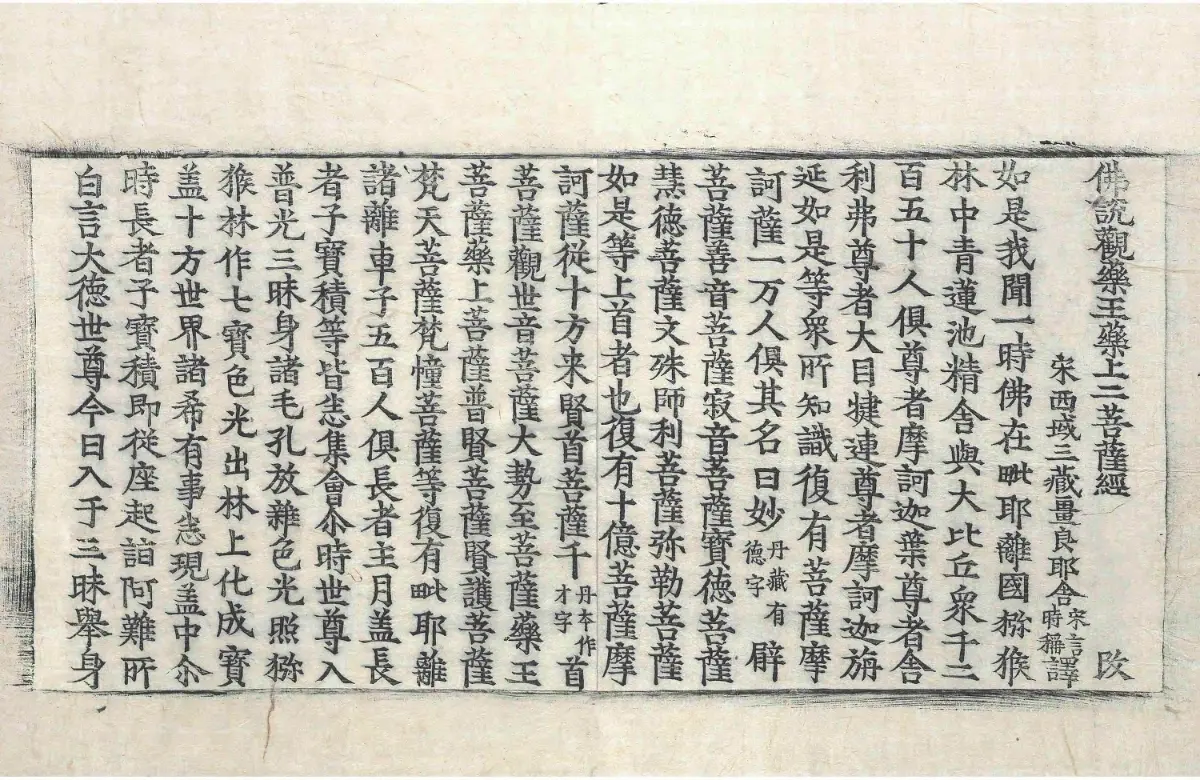 佛說觀藥王藥上二菩薩經 改
宋西域三藏畺良耶舍宋言時稱譯
如是我聞一時佛在毗耶離國獼猴
林中青蓮池精舍與大比丘衆千二
百五十人俱尊者摩訶迦葉尊者舍
利弗尊者大目揵連尊者摩訶迦旃
延如是等衆所知識復有菩薩摩
訶薩一万人俱其名曰妙丹藏有德字辟
菩薩善音菩薩寂音菩薩寶德菩薩
慧德菩薩文殊師利菩薩弥勒菩薩
如是等上首者也復有十億菩薩摩
訶薩從十方来賢首菩薩千丹本作才字首
菩薩觀世音菩薩大勢至菩薩藥王
菩薩藥上菩薩普賢菩薩賢護菩薩
梵天菩薩梵幢菩薩等復有毗耶離
諸離車子五百人俱長者主月盖長
者子寶積等皆悉集會尒時世尊入
普光三昧身諸毛孔放雜色光照獼
猴林作七寶色光出林上化成寶
盖十方世界諸希有事悉現盖中尒
時長者子寶積即從座起詣阿難所
白言大德世尊今日入于三昧舉身